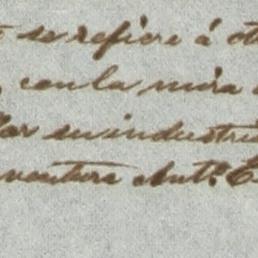 se refiere á ot
, con la mira
lar su industri
ventura Ant.º C